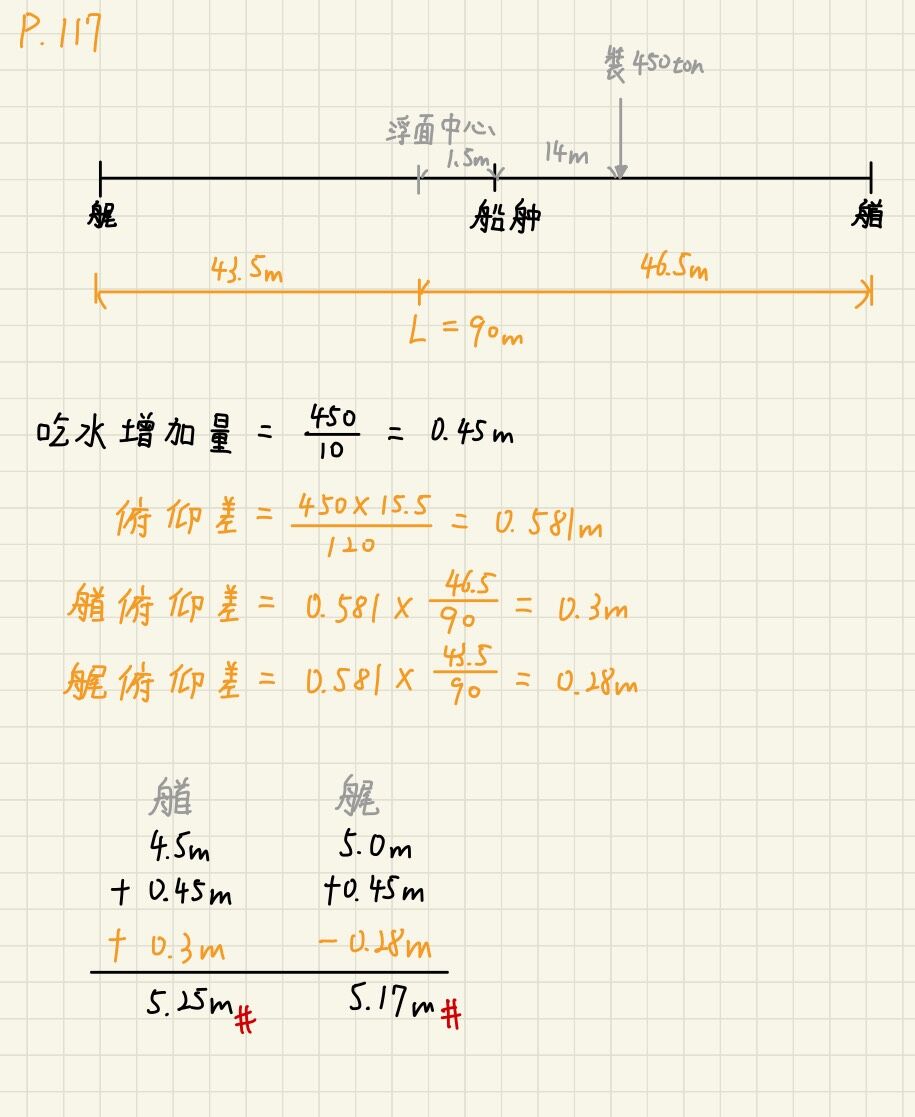 P.117
裝450ton
浮面中心
1.5m 14m
艉 船舯 艏
43.5m 46.5m
L = 90m
吃水增加量 = 450/10 = 0.45m
俯仰差 = 450×15.5/120 = 0.581m
艏俯仰差 = 0.581 × 46.5/90 = 0.3m
艉俯仰差 = 0.581 × 43.5/90 = 0.28m
艏 艉
4.5m 5.0m
+ 0.45m +0.45m
+ 0.3m - 0.28m
5.25m# 5.17m#